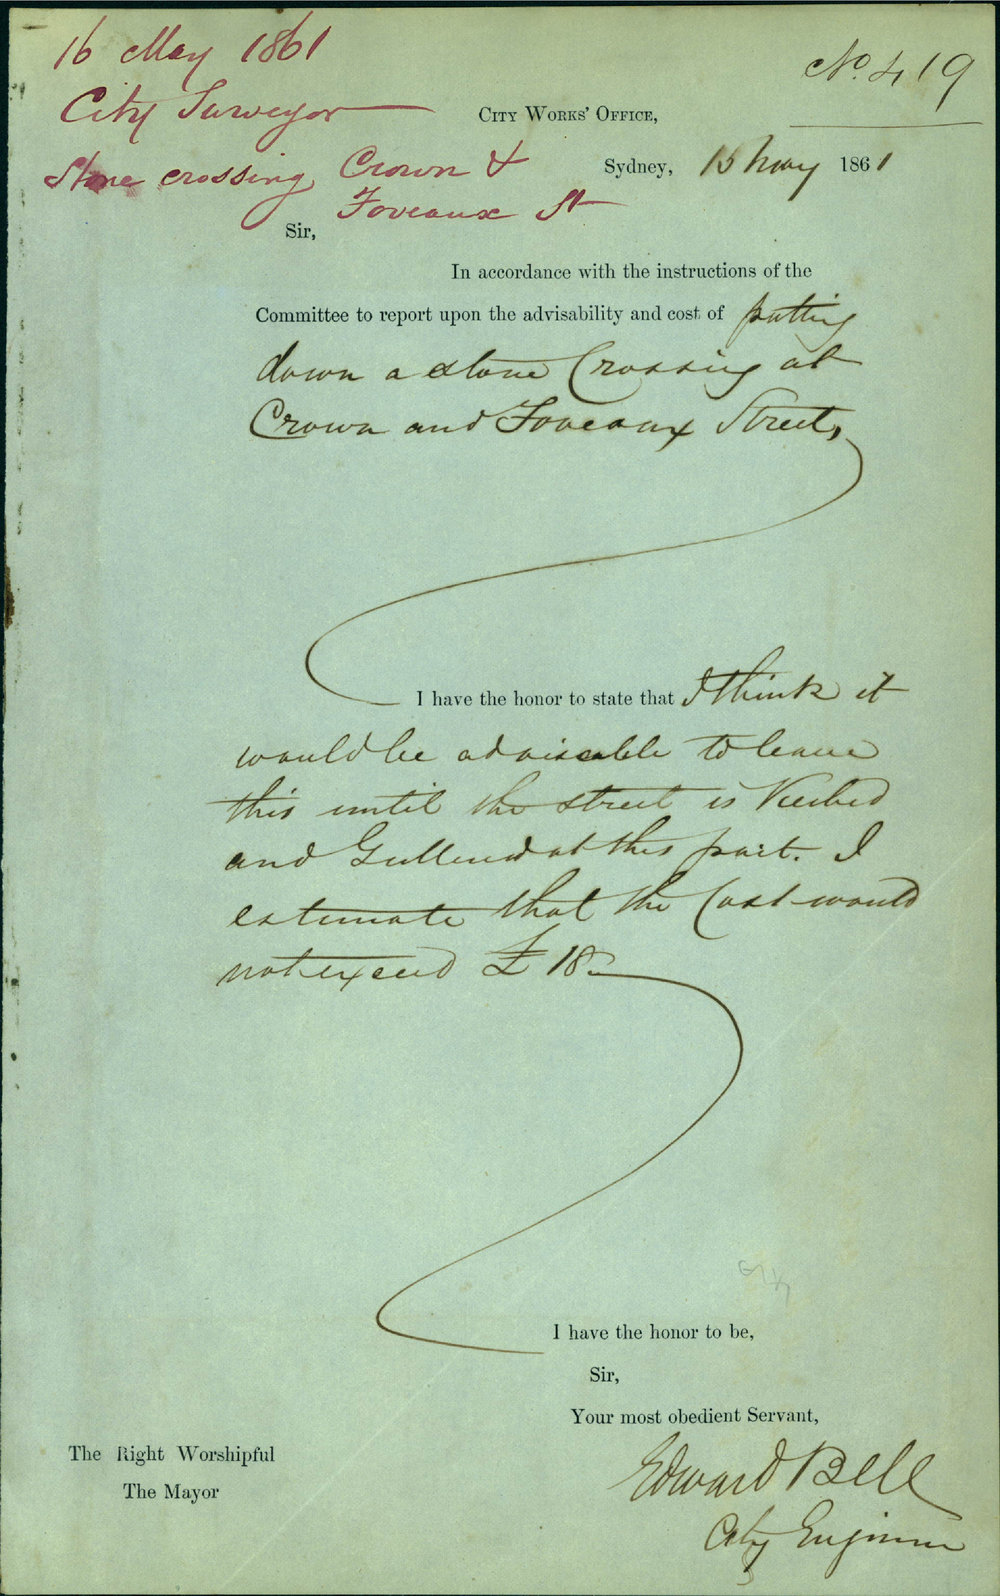 16 May 1861
No. 419
City Surveyor
City Works' Office,
Stone crossing Crown &
Foveaux St
Sydney, 15 May 1861
Sir,
In accordance with the instructions of the
Committee to report upon the advisability and cost of putting
down a stone Crossing at
Crown and Foveaux Street,
I have the honor to state that I think it
would be advisable to leave
this until the street is Kerbed
and Guttered at this part. I
estimate that the Cost would
not exceed £18
I have the honor to be,
Sir,
Your most obedient Servant,
The Right Worshipful
The Mayor
Edward Bell
City Engineer